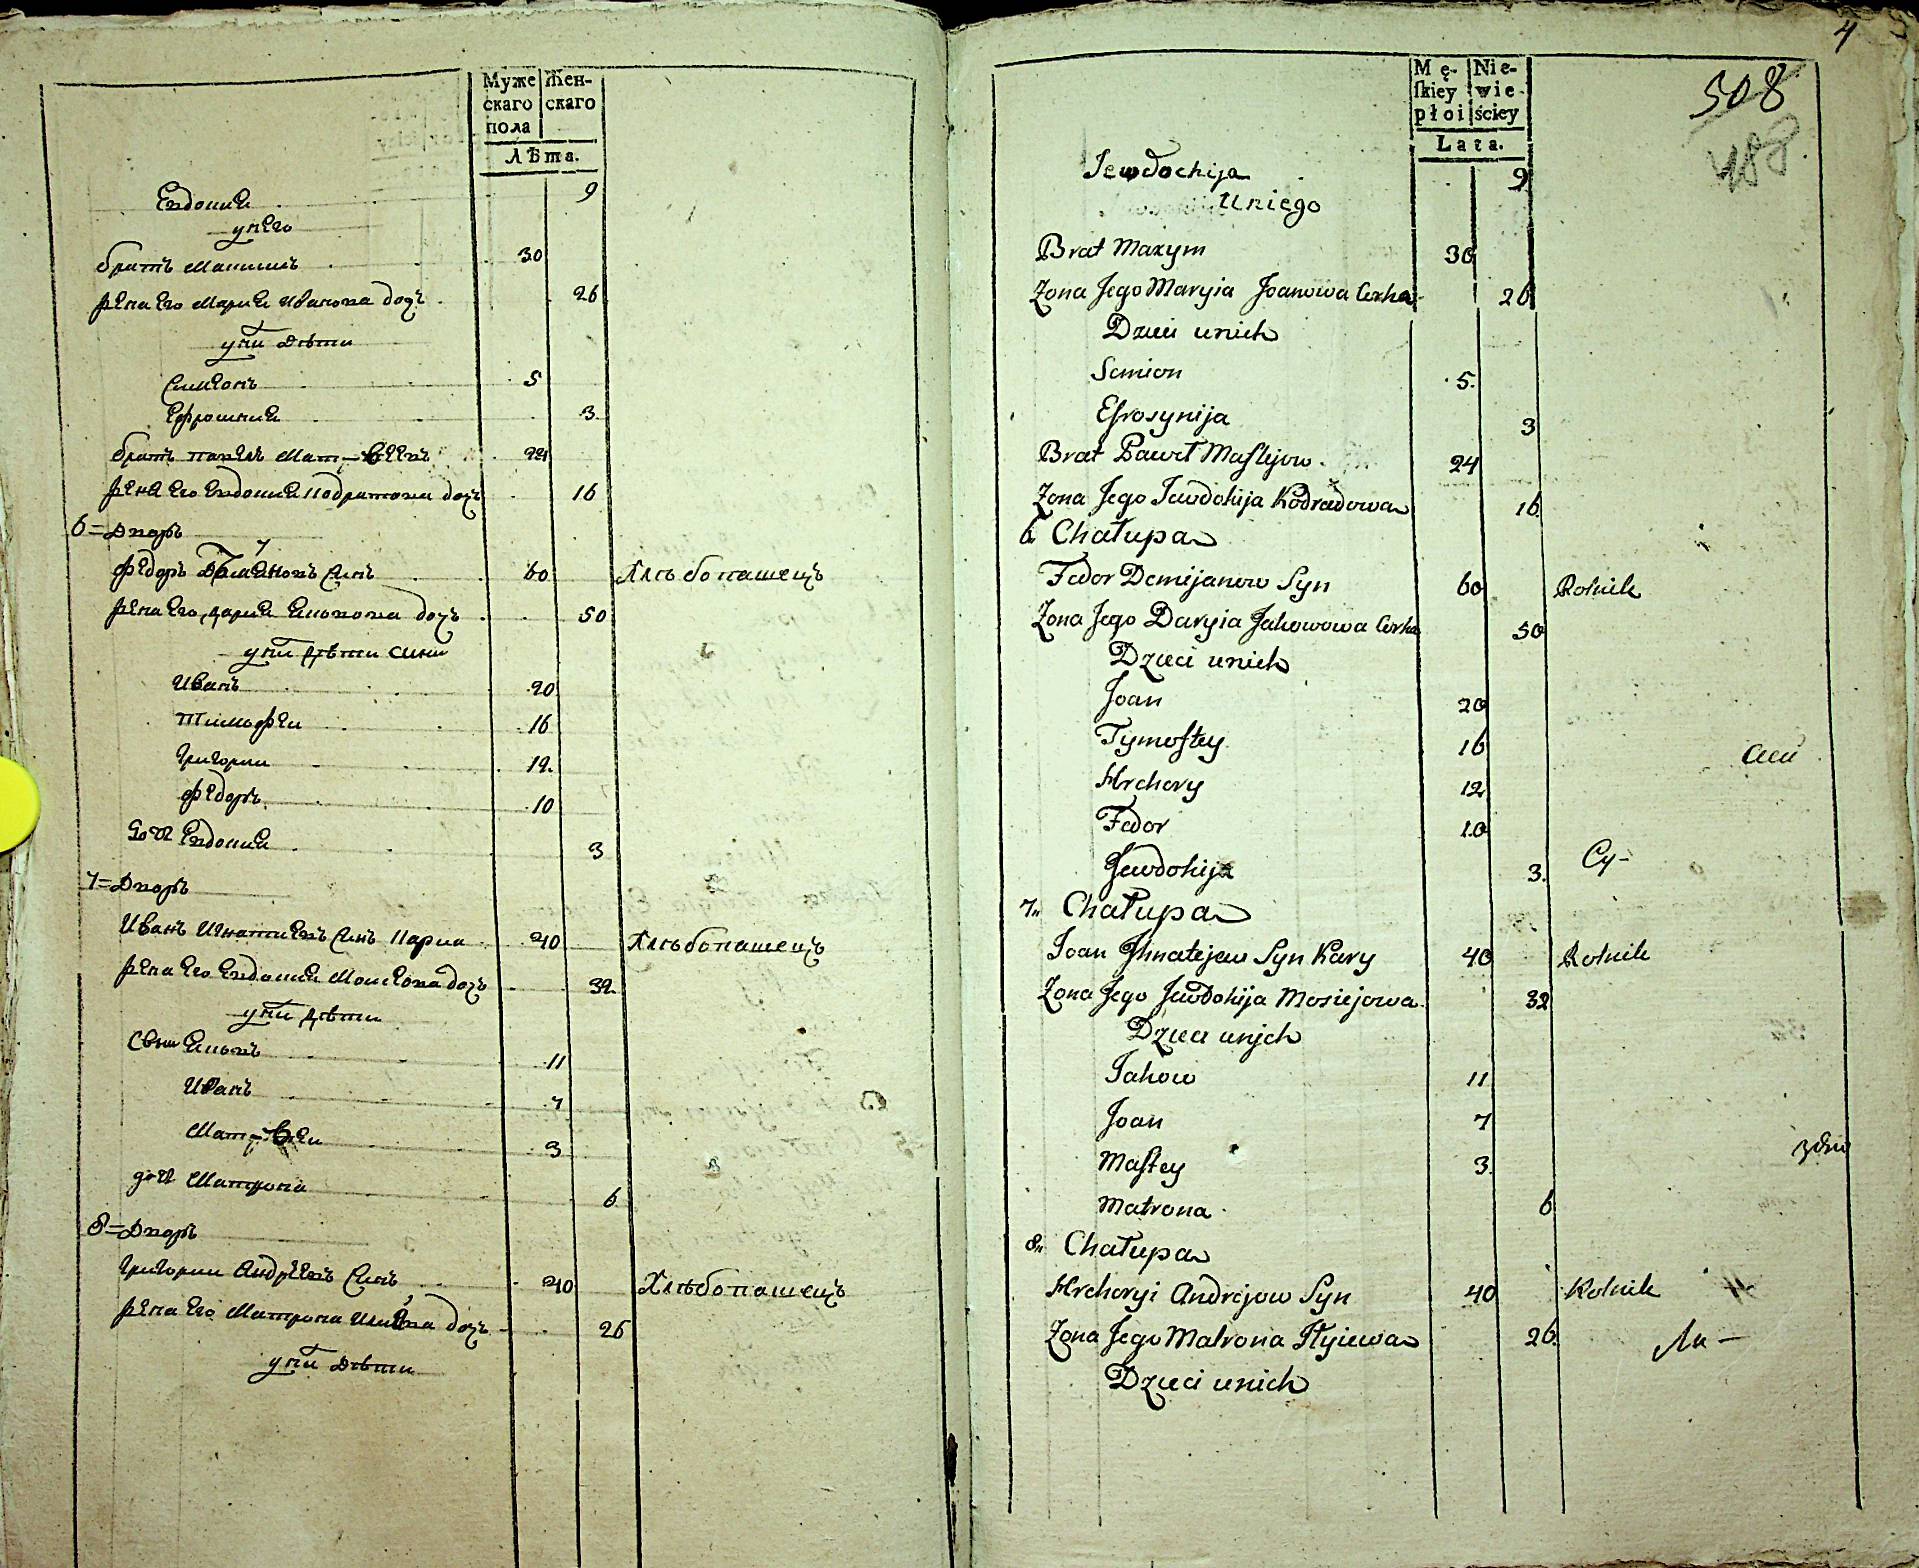 Муже Жен-
скаго скаго
пола
Лѣта.
Евдокия 9
у него
братъ Максимъ 30
жена его Мария Иванова доч 26
у них дѣти
Симеонъ 5
Ефросиния 3
братъ павелъ Матѳѣевъ 24
жена его Евдокия Кодратова доч 16
6=Дворъ
Федоръ Демяновъ Синъ 60 Хлѣбопашецъ
жена его дария Яковова доч 50
у них дѣти сини
Иванъ 20
Тимофеи 16
Григории 12.
Федоръ 10
дочь Евдокия 3
7=Дворъ
Иванъ Игнатиевъ Синъ Кариа 40 Хлѣбопашецъ
жена его Евдокия Моисеова доч 32.
у них дѣти
Сини Яковъ 11
Иванъ 7
Матѳѣи 3
дочь Матрона 6
8=Дворъ
Григории Андреевъ Синъ 40 Хлѣбопашецъ
жена его Матрона Илиева доч 26
у них дѣти
4
508
488
Mę- Nie-
ſkiey wie-
płci ściey
Lata.
Jewdochija 9
Uniego
Brat Maxym 30
Zona Jego Maryia Joanowa Corka 26
Dzieci unich
Semion 5.
Efrosynija 3
Brat Paweł Maftejow. 24
Zona Jego Jewdohija Kodradowa 16
6. Chałupa
Fedor Demijanow Syn 60 Rolnik
Zona Jego Daryia Jakowowa Corka 50
Dzieci unich
Joan 20
Tymoftey 16
Hrehory 12
Fedor 10
Jewdohija 3. Су-
7. Chałupa
Joan Ihnatejew Syn Kary 40 Rolnik
Zona Jego Jewdohija Mosiejowa 32
Dzieci unich
Jakow 11
Joan 7
Maftey 3.
Matrona 6
8. Chałupa
Hrehoryi Andrejow Syn 40 Rolnik
Zona Jego Matrona Iłyiewa 26. Ли-
Dzieci unich